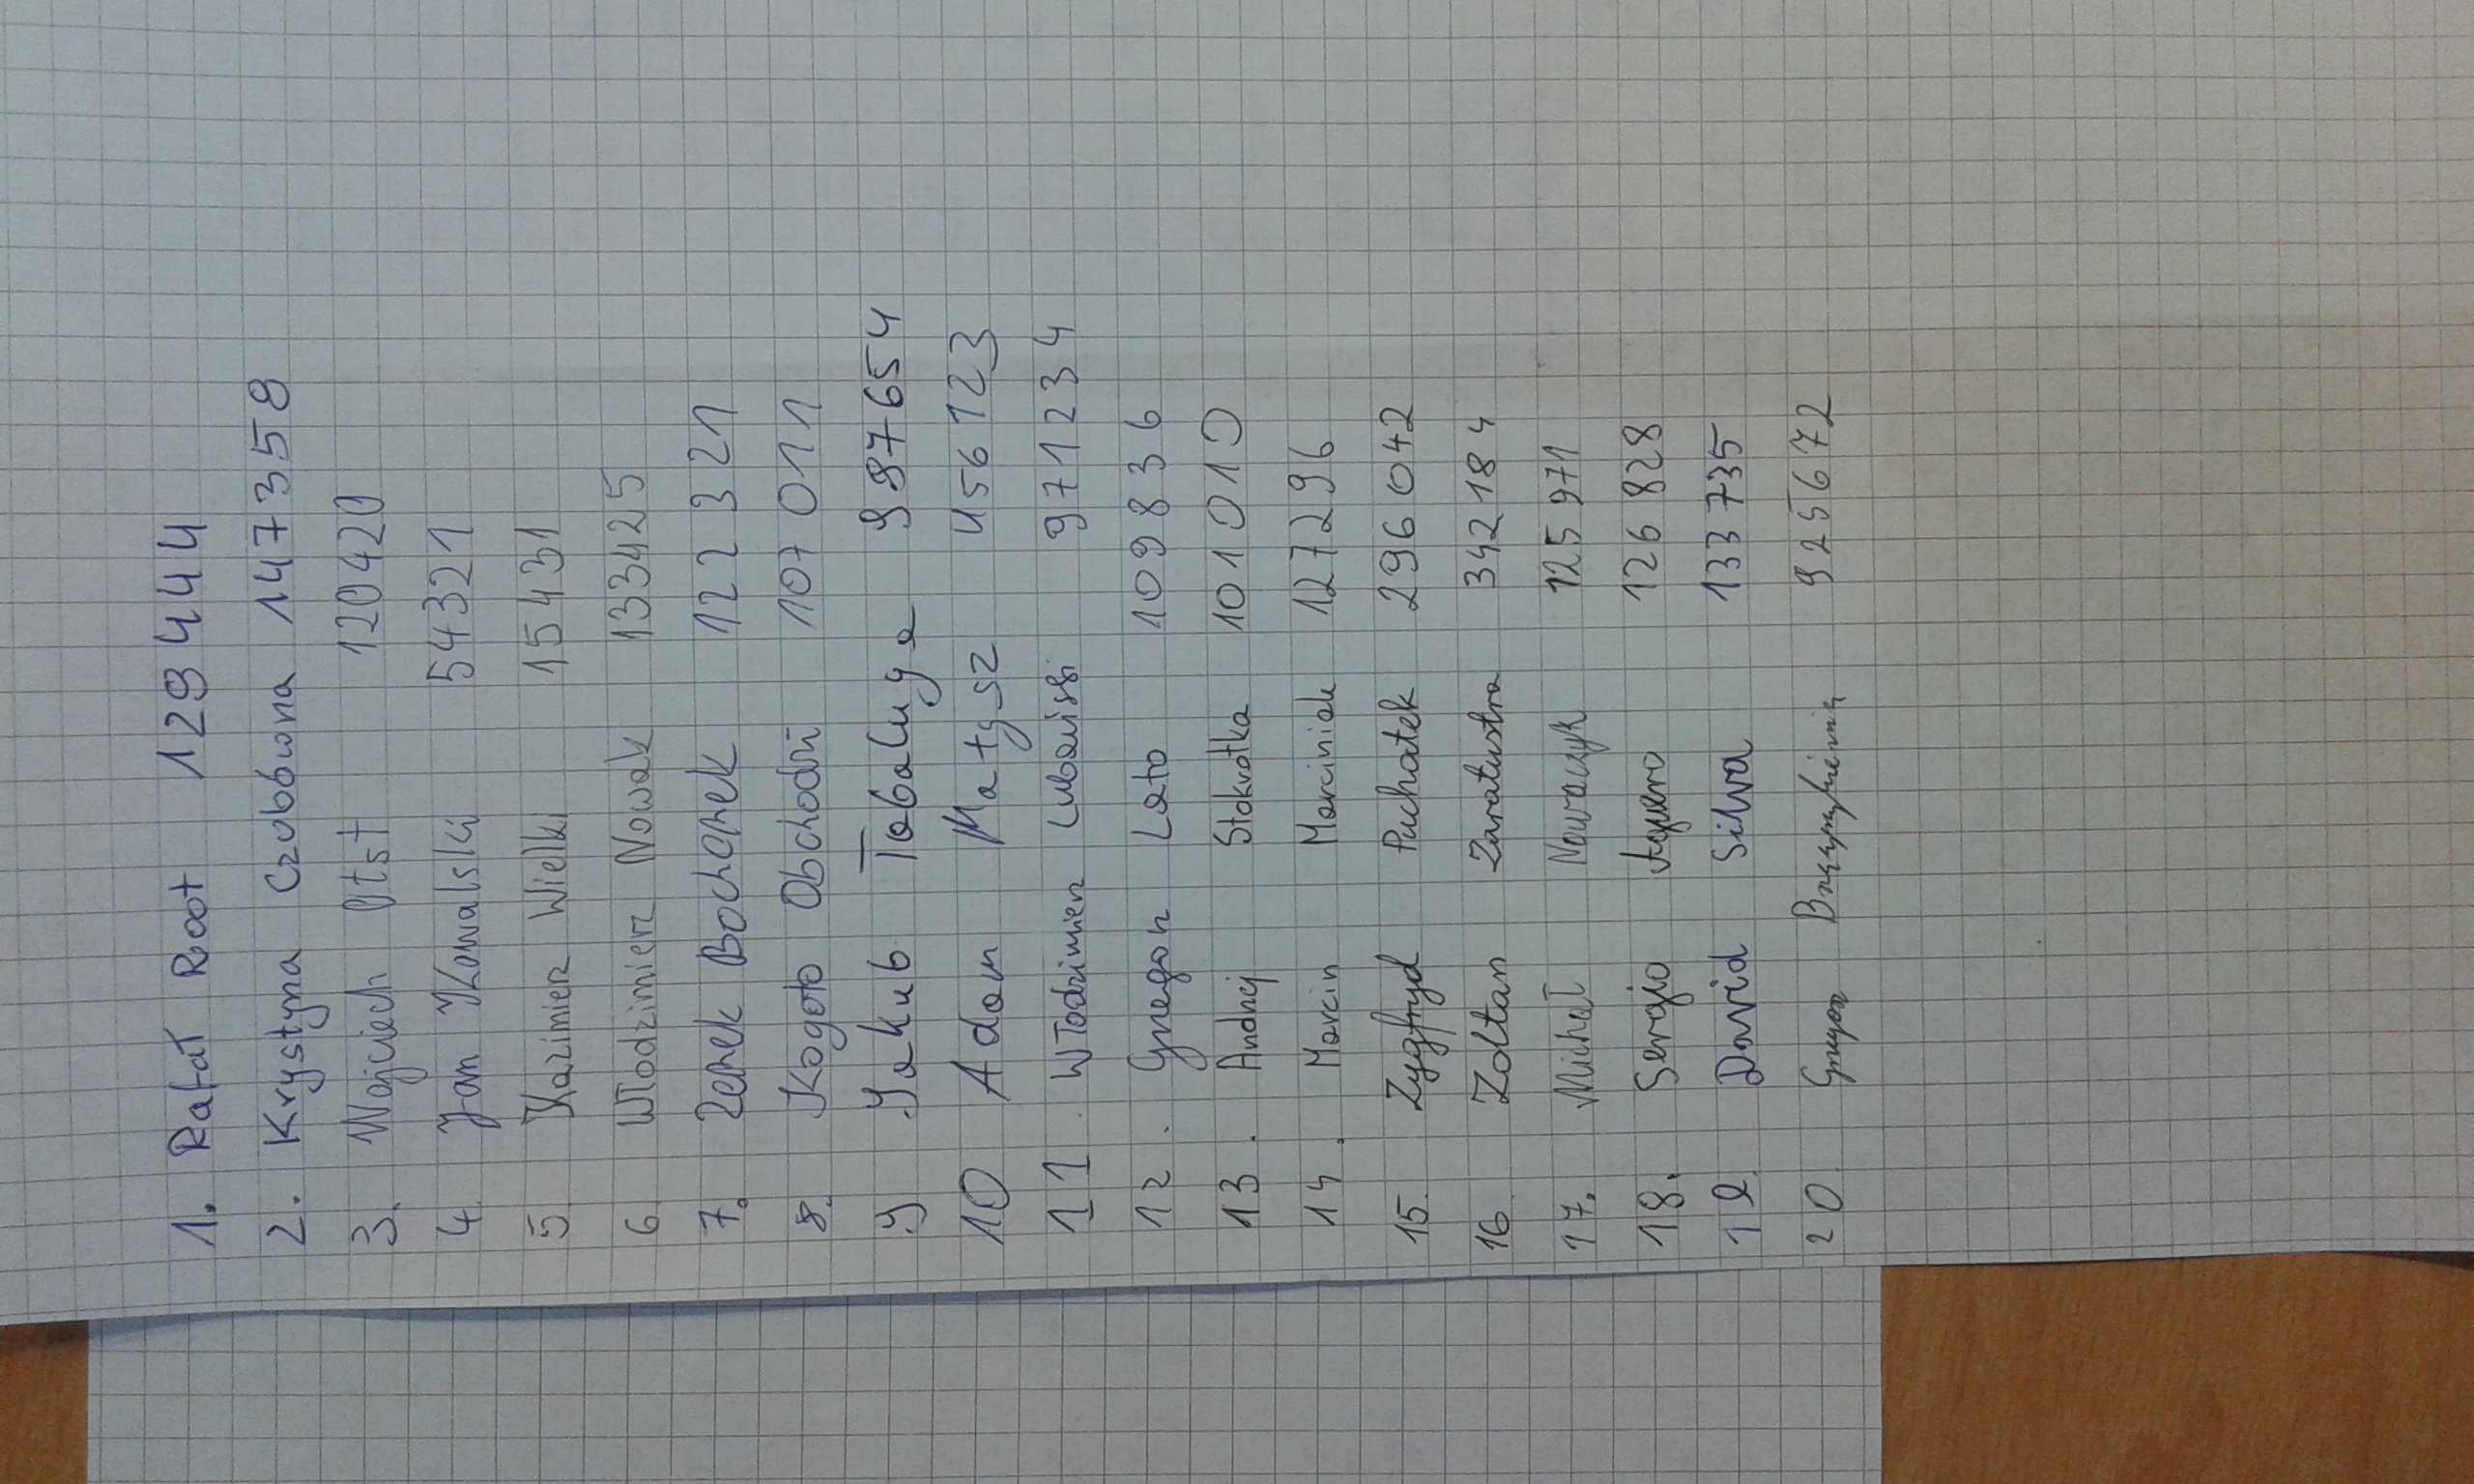 1. Rafał Root 129444
2. Krystyna Czubówna 147359
3. Wojciech Otst 120420
4. Jan Kowalski 54321
5. Kazimierz Wielki 15431
6. Włodzimierz Nowak 133425
7. Zenek Bochenek 122321
8. Kogoto Obchodzi 107011
9 Jakub Tabaluga 987654
10 Adam Małysz 456123
11. Włodzimierz 971234
12. Grzegorz Lato 109836
13. Andrzej Stokrotka 101010
14. Marcin Marciniak 127296
15. Zygfryd Puchatek 296042
16 Zoltan Zaratustra 342184
17. Michał Nowaczyk 125971
18. Sergio Aguero 126828
19. David Silva 133735
20. Grzegorz 925672